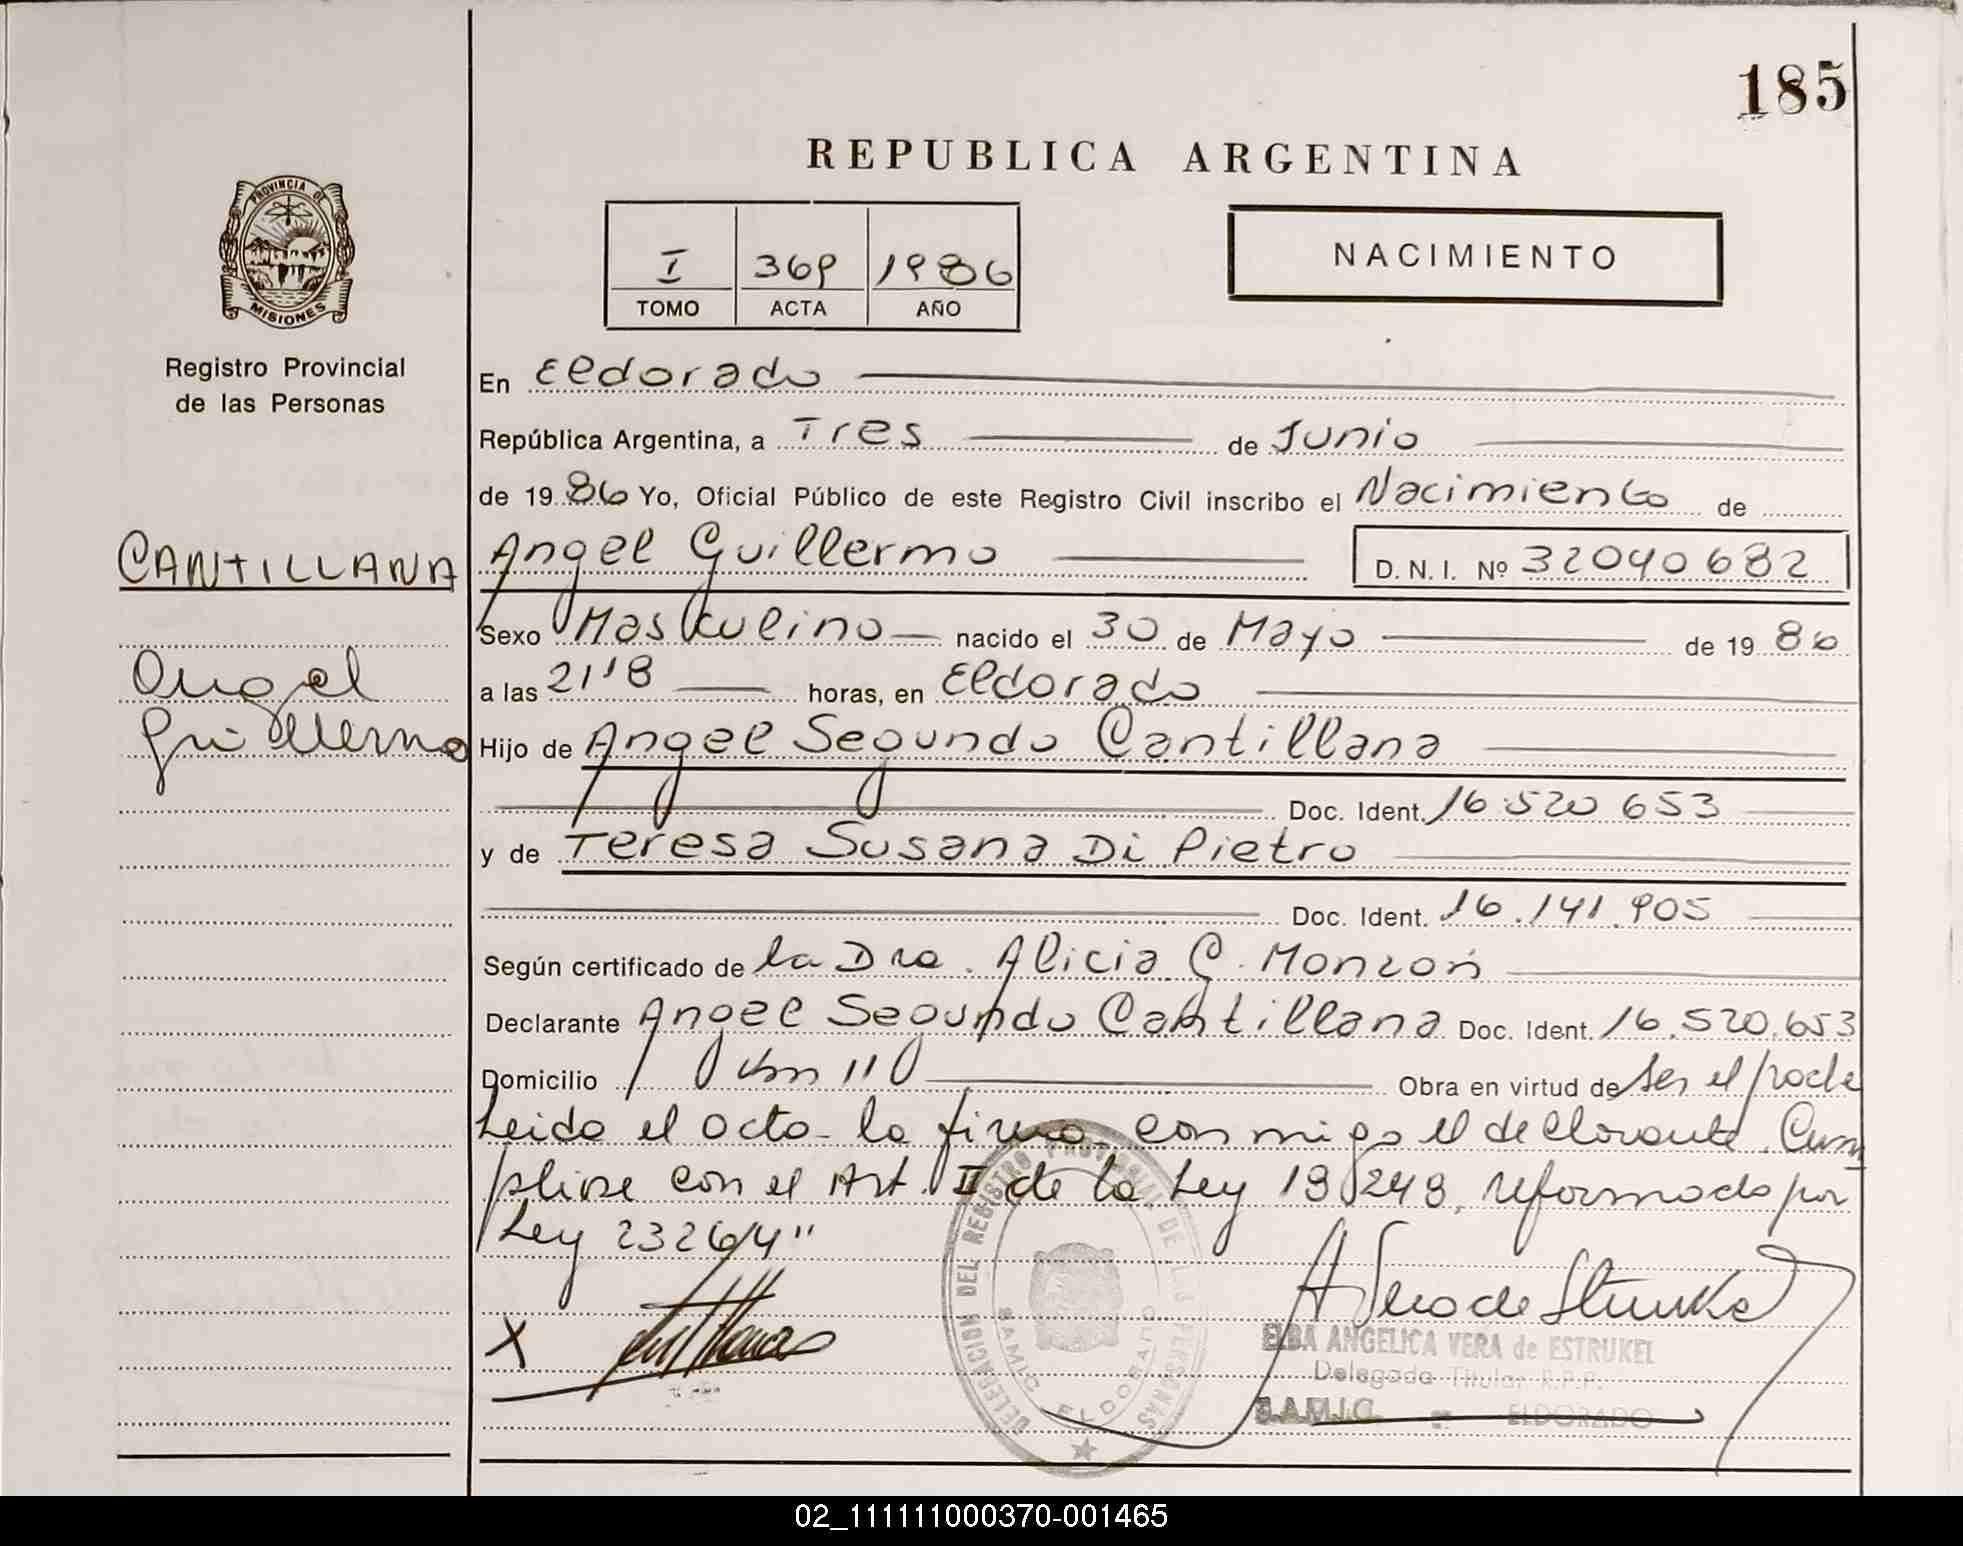 185
REPUBLICA ARGENTINA
PROVINCIA DE
MISIONES
Registro Provincial
de las Personas
I 369 1986
TOMO ACTA AÑO
NACIMIENTO
En Eldorado
República Argentina, a Tres de Junio
de 1986 Yo, Oficial Público de este Registro Civil inscribo el Nacimiento de
CANTILLANA
Angel Guillermo D.N.I. Nº 32040682
Sexo Masculino nacido el 30 de Mayo de 1986
Angel
Guillermo
a las 21'8 horas, en Eldorado
Hijo de Angel Segundo Cantillana
Doc. Ident. 16.520 653
y de Teresa Susana Di Pietro
Doc. Ident. 16.141.905
Según certificado de la Dra. Alicia G. Monzón
Declarante Angel Segundo Cantillana Doc. Ident. 16.520.653
Domicilio Km 11 Obra en virtud de ser el padre
Leida el acta la firma conmigo el declarante. Cum
plirse con el Art. II de la Ley 18248, reformado por
Ley 23264"
X
DELEGACION DEL REGISTRO PROVINCIAL DE LAS PERSONAS
SAMIC ELDORADO
ELBA ANGELICA VERA de ESTRUKEL
Delegada Titular R.P.P.
S.A.M.I.C. - ELDORADO
02_111111000370-001465